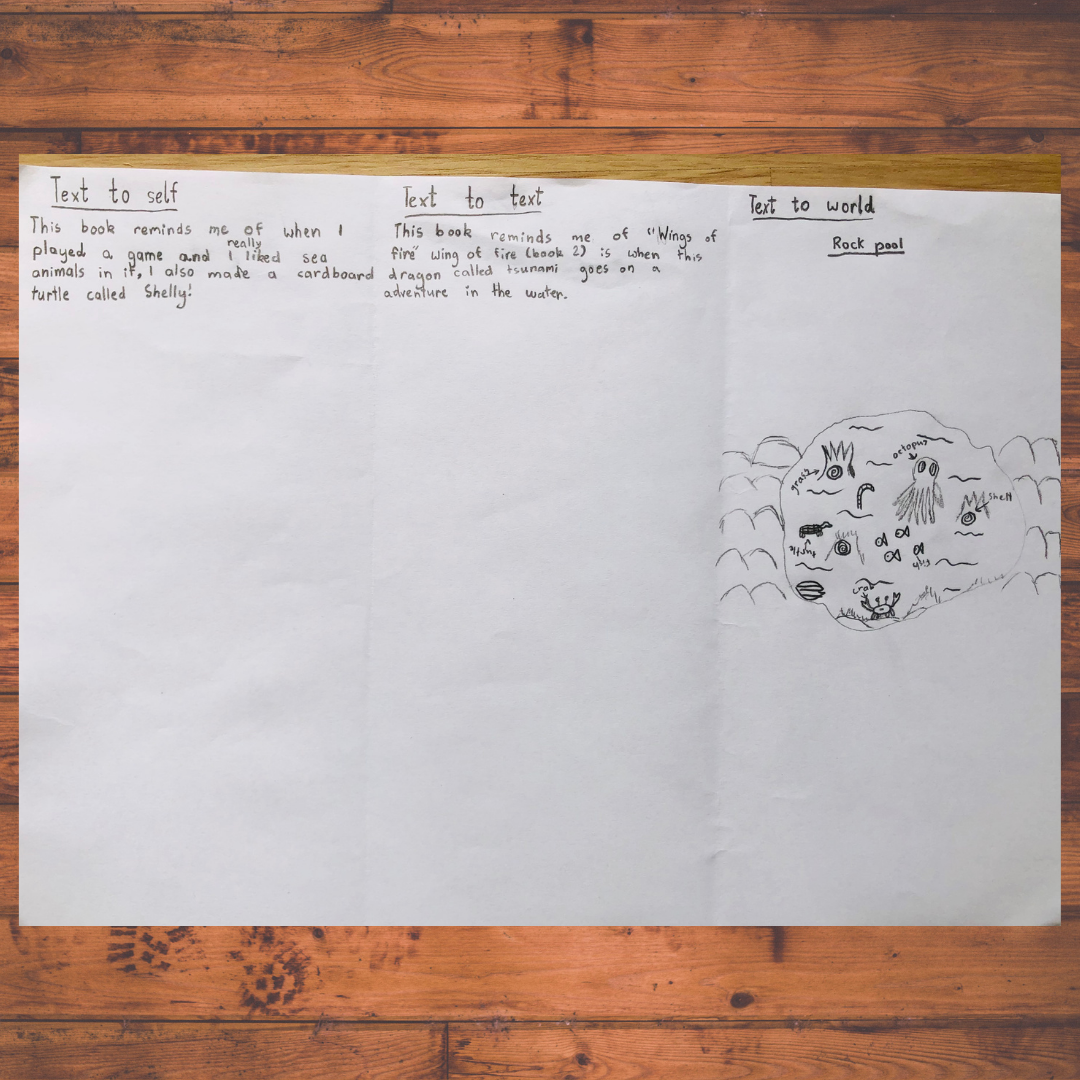 Text to self
This book reminds me of when I
played a game and I really liked sea
animals in it, I also made a cardboard
turtle called Shelly!
Text to text
This book reminds me of "Wings of
fire" wing of fire (book 2) is when this
dragon called tsunami goes on a
adventure in the water.
Text to world
Rock pool
octopus
grass
shell
turtle
fish
crab